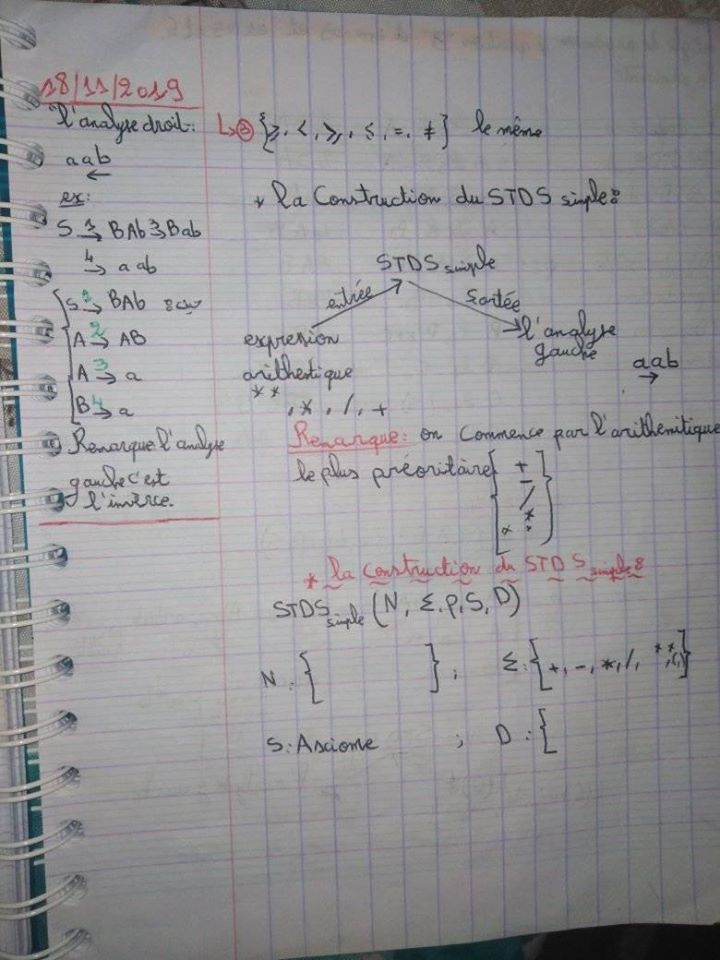 18/11/2019
l'analyse droit:
aab
←
ex:
S →1 BAb →3 Bab
→4 aab
S →1 BAb
A →2 AB
A →3 a
B →4 a
Remarque l'analyse
gauche c'est
l'inverse.
↳ ③ {>, <, ⩾, ≤, =, ≠} le même
* la Construction du STDS simple:
STDS simple
entrée
sortée
expression
arithestique
**, *, /, +
l'analyse
gauche
aab
→
Remarque: on commence par l'arithémitique
le plus préoritaire
+
-
/
*
**
* la construction du STDS simple:
STDS simple (N, Σ, P, S, D)
N : { } ; Σ : {+, -, *, /, **, (,)}
S : Asciome ; D : {